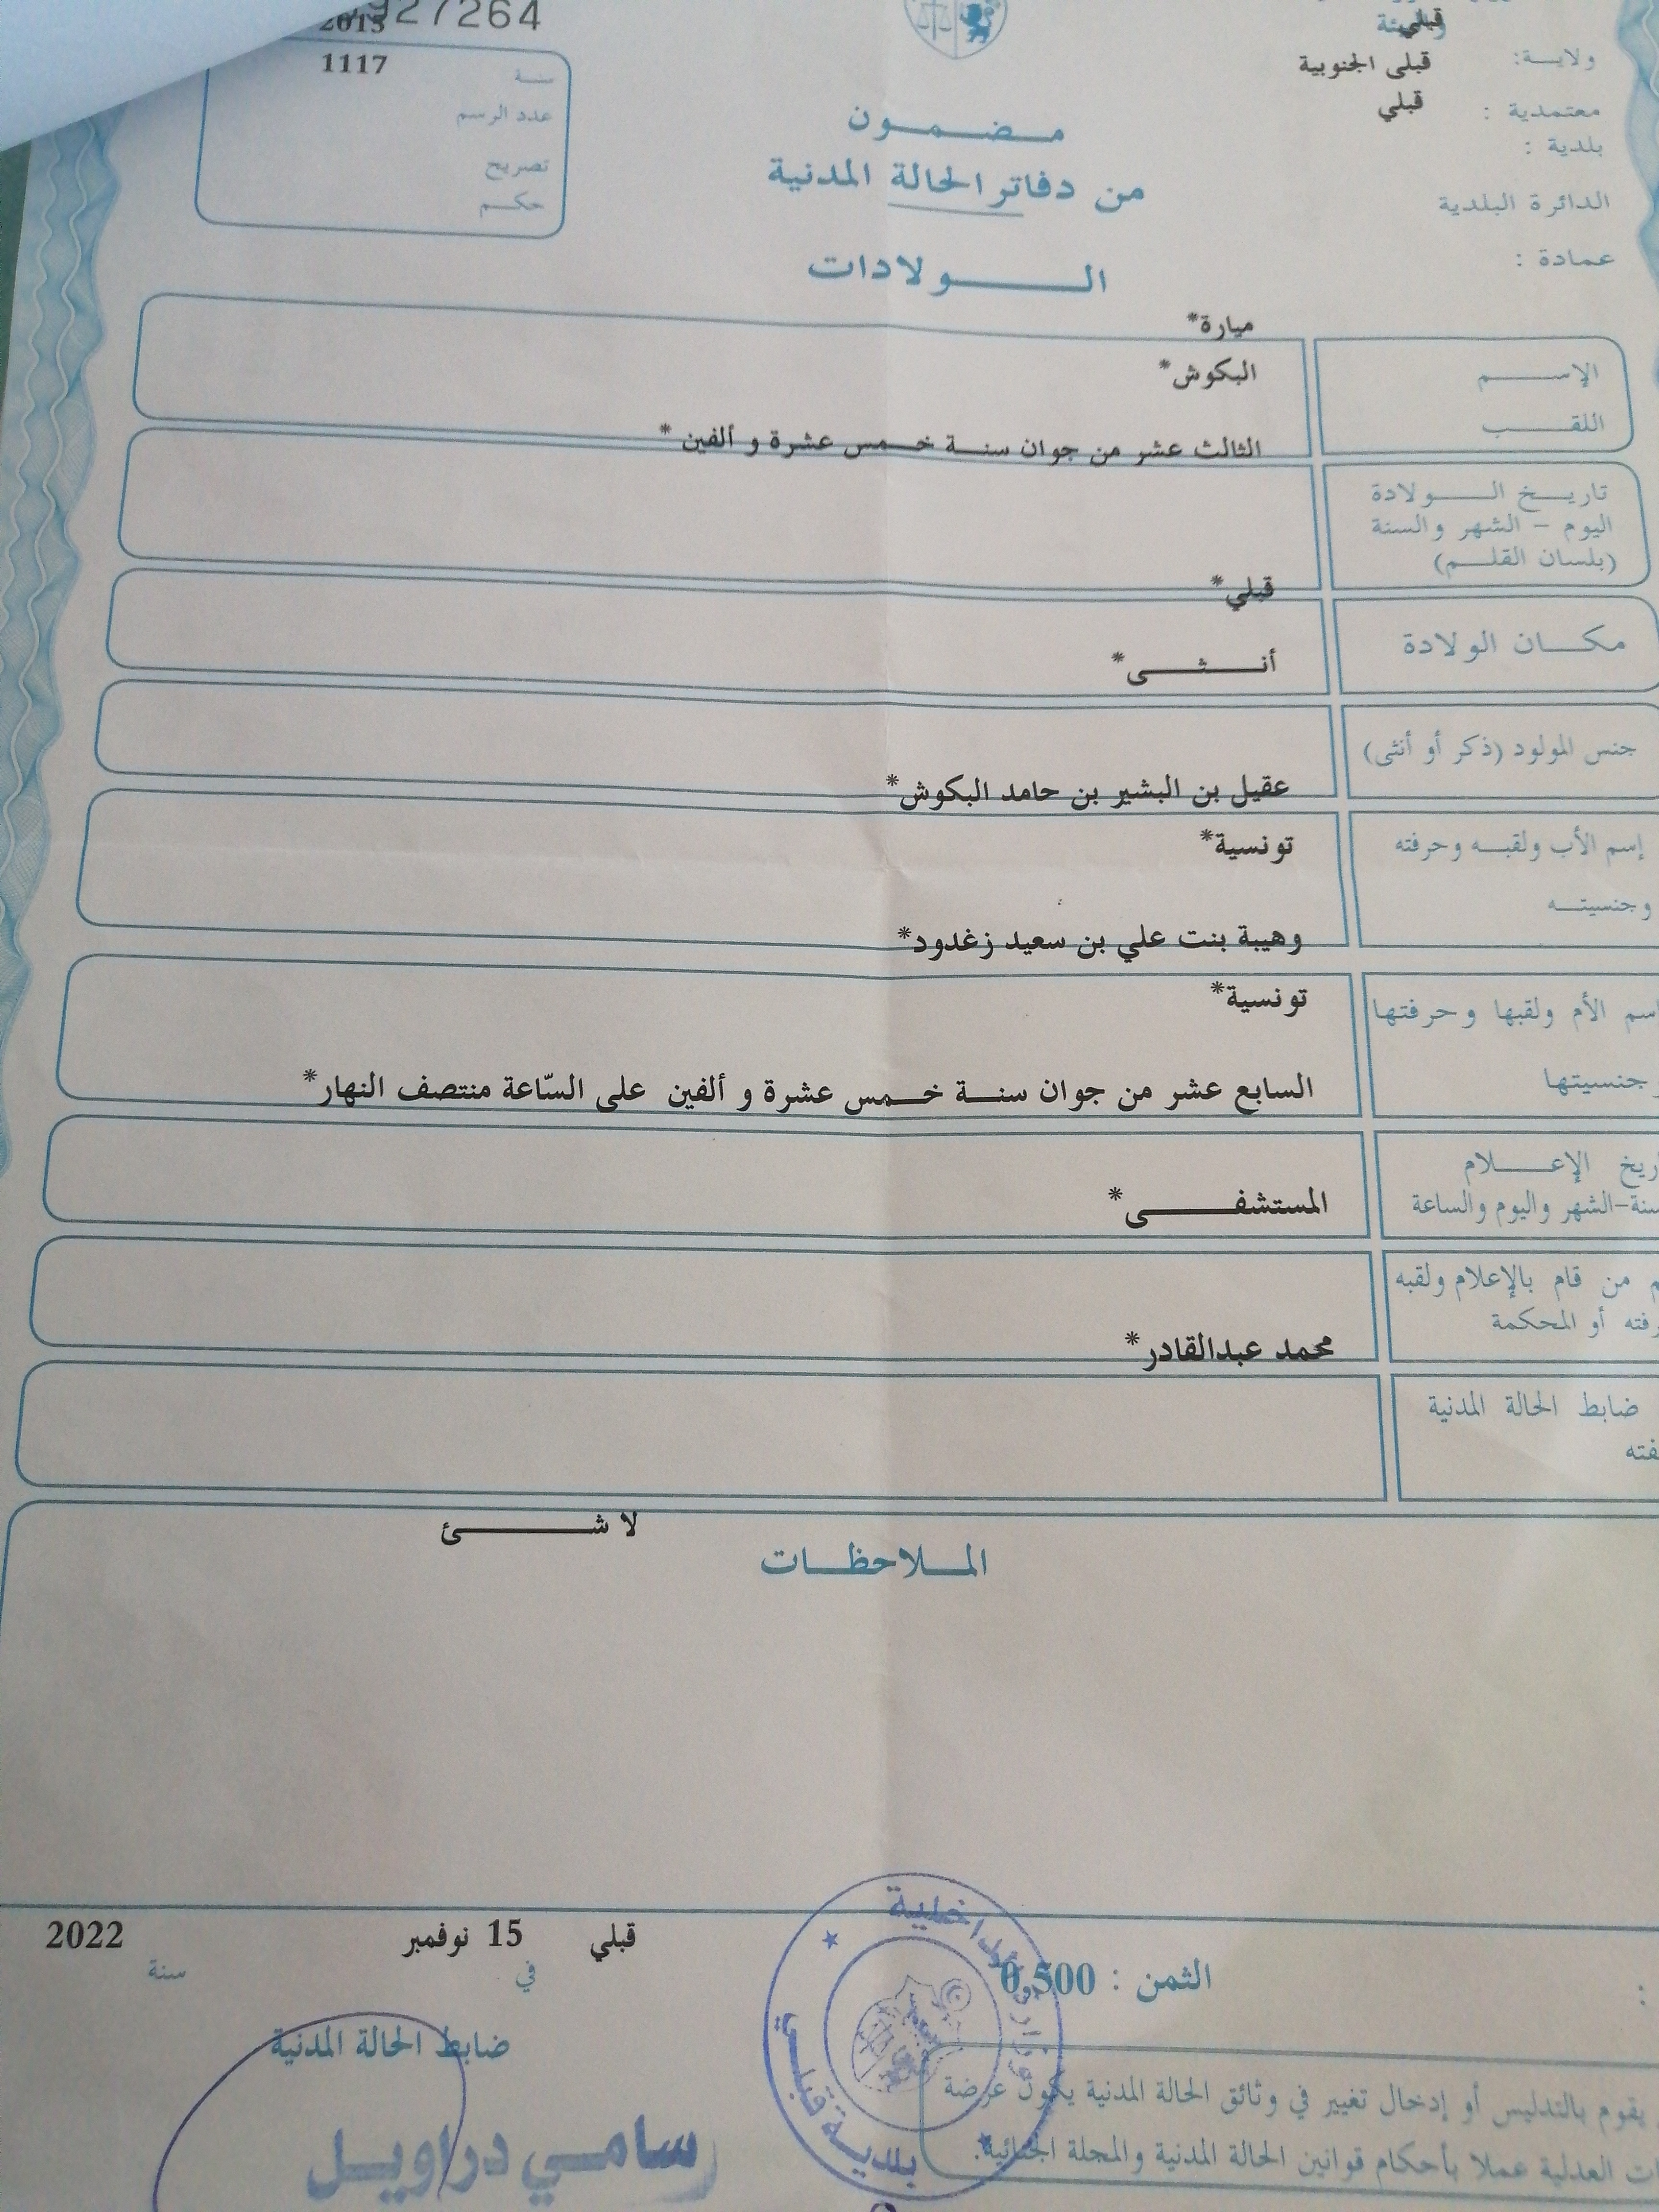 927264
2015
1117
سنة
عدد الرسم
تصريح
حكم
قبلي
ولاية:
قبلي الجنوبية
معتمدية :
قبلي
بلدية :
الدائرة البلدية
عمادة :
مضمون
من دفاتر الحالة المدنية
الولادات
ميارة*
الإسم
البكوش*
اللقب
الثالث عشر من جوان سنة خمس عشرة و ألفين *
تاريخ الولادة
اليوم - الشهر والسنة
(بلسان القلم)
قبلي*
مكان الولادة
أنثى*
جنس المولود (ذكر أو أنثى)
عقيل بن البشير بن حامد البكوش*
إسم الأب ولقبه وحرفته
تونسية*
وجنسيته
وهيبة بنت علي بن سعيد زغدود*
اسم الأم ولقبها وحرفتها
تونسية*
جنسيتها
السابع عشر من جوان سنة خمس عشرة و ألفين على السّاعة منتصف النهار*
الإعلام
سنة-الشهر واليوم والساعة
المستشفى*
من قام بالإعلام ولقبه
أو المحكمة
محمد عبدالقادر*
ضابط الحالة المدنية
لا شئ
الملاحظات
قبلي 15 نوفمبر 2022
في سنة
الثمن : 0,500
ضابط الحالة المدنية
سامي دراويل
وزارة الداخلية
بلدية قبلي
يقوم بالتدليس أو إدخال تغيير في وثائق الحالة المدنية يكون عرضة
العدلية عملا بأحكام قوانين الحالة المدنية والمجلة الجنائية.